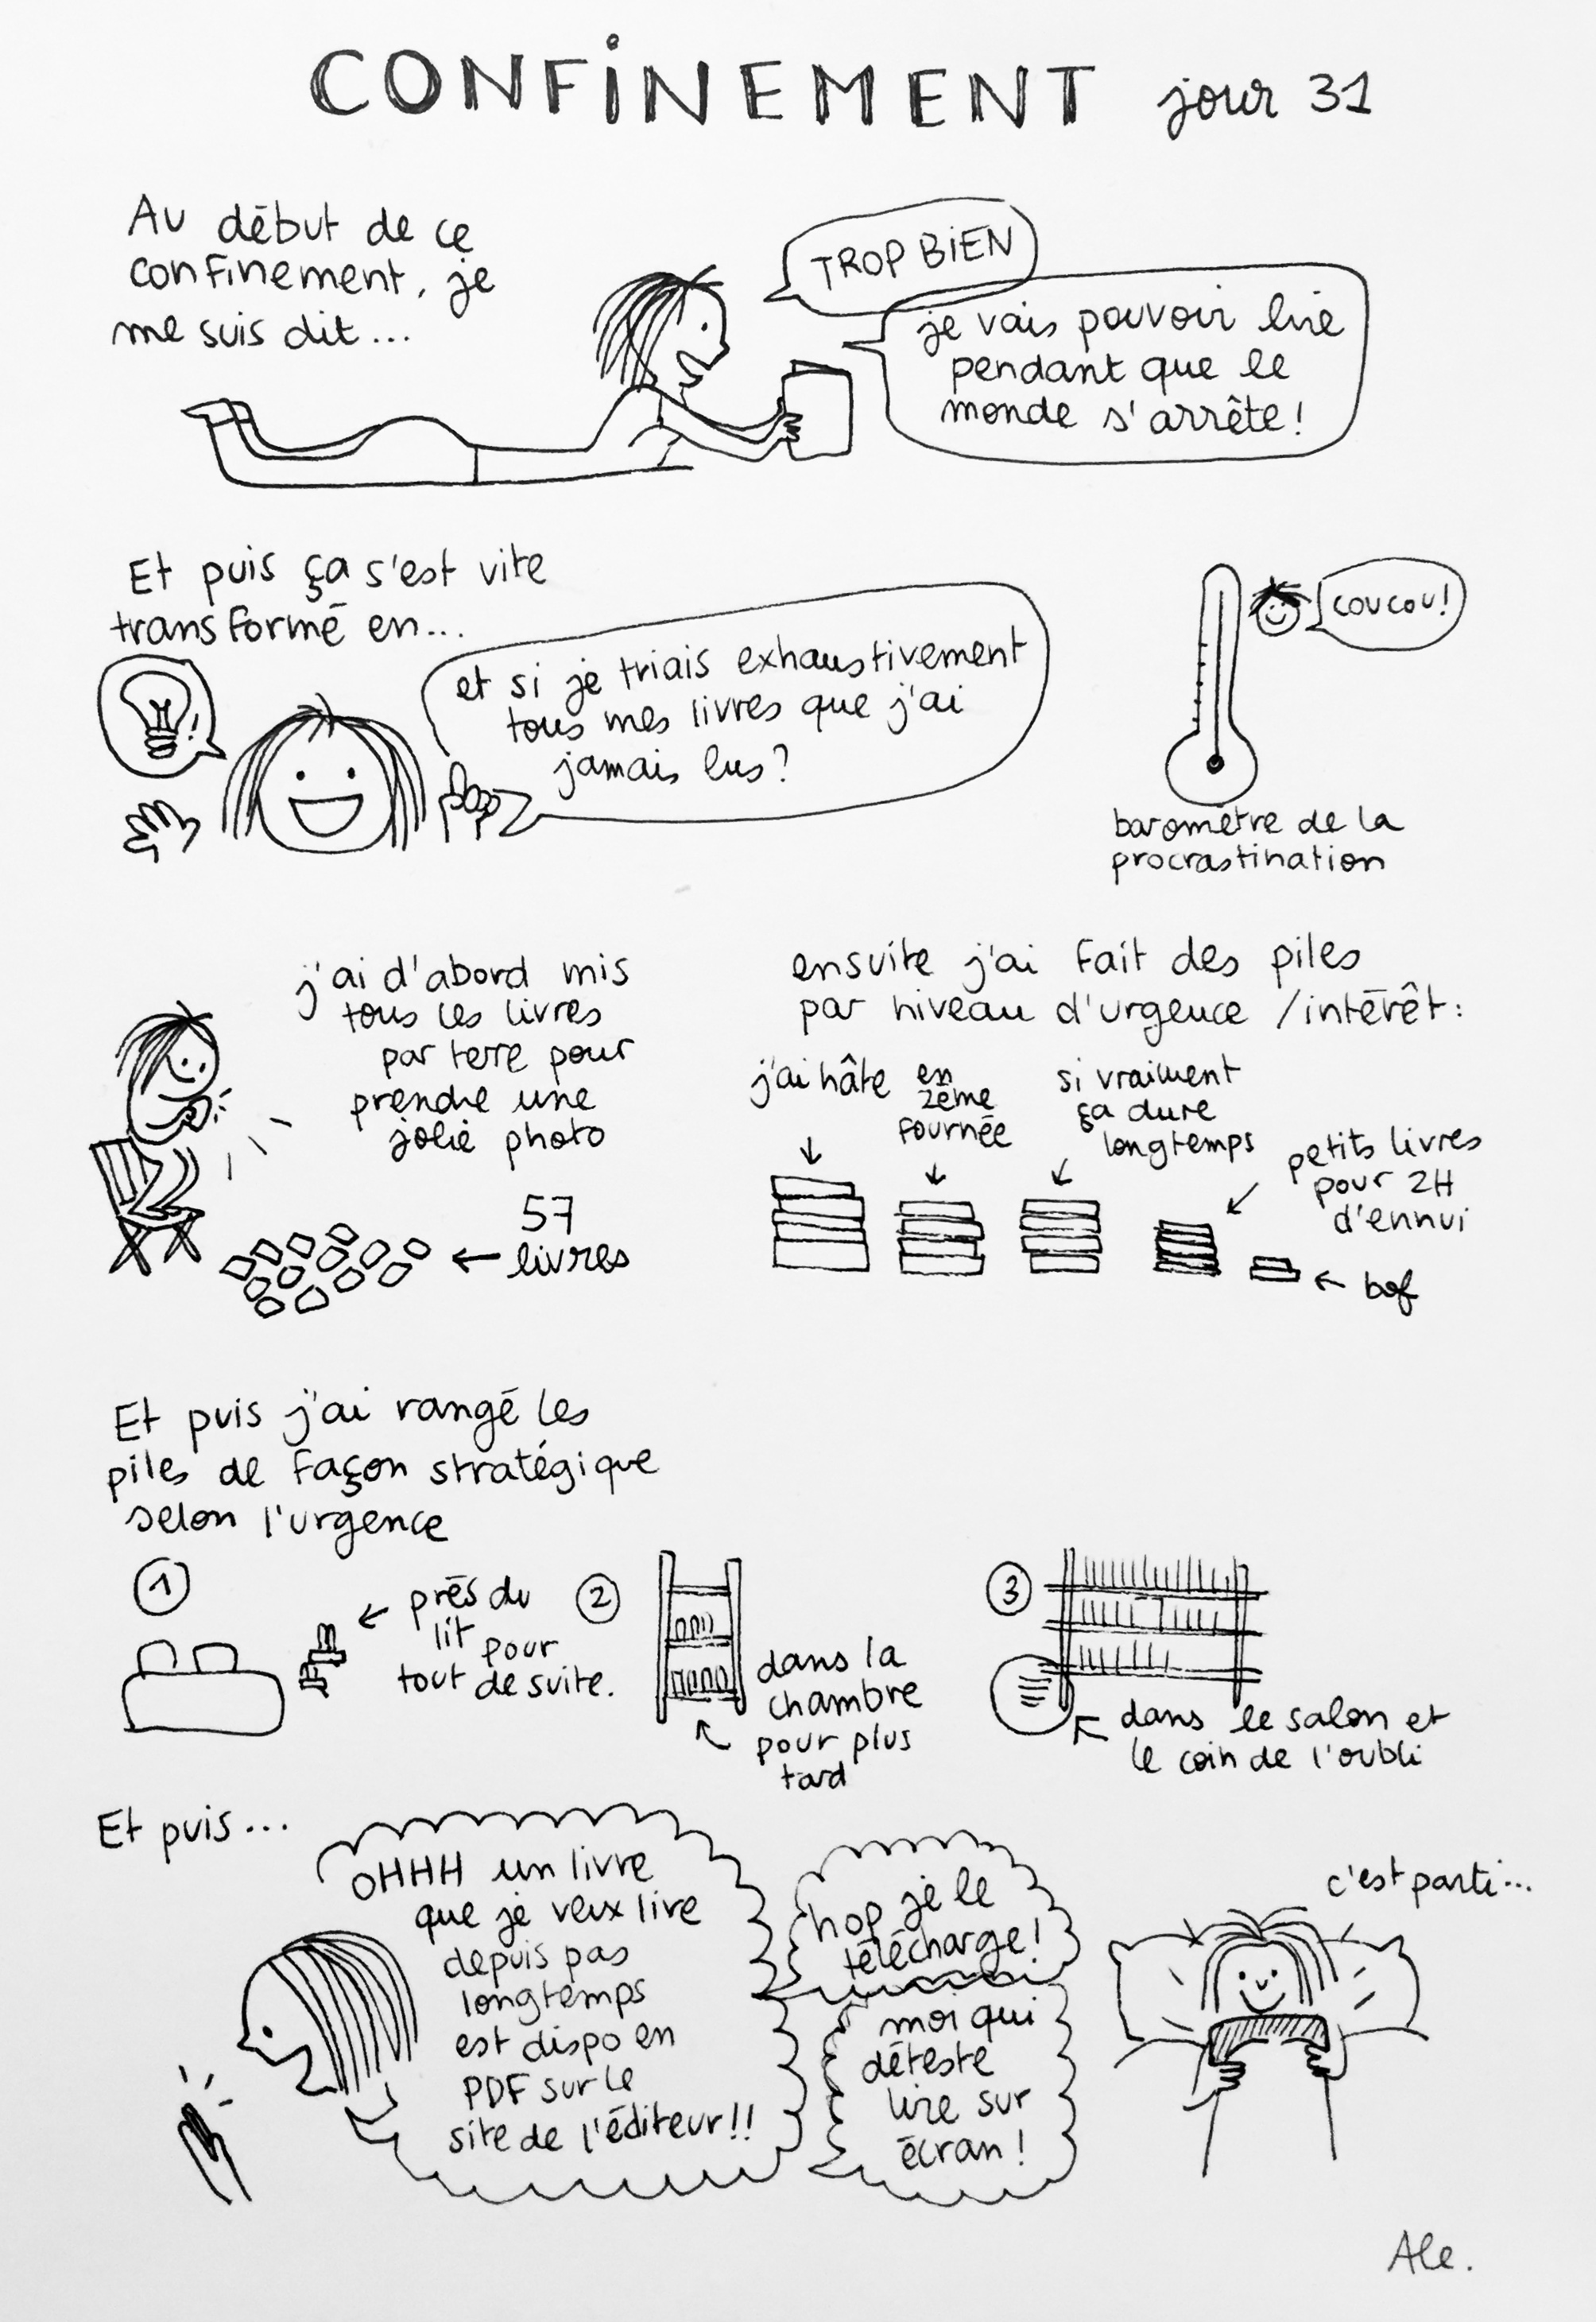 CONFINEMENT jour 31
Au début de ce
confinement, je
me suis dit...
TROP BIEN
je vais pouvoir lire
pendant que le
monde s'arrête!
Et puis ça s'est vite
transformé en...
et si je triais exhaustivement
tous mes livres que j'ai
jamais lus?
coucou!
baromètre de la
procrastination
j'ai d'abord mis
tous les livres
par terre pour
prendre une
jolie photo
57
livres
ensuite j'ai fait des piles
par niveau d'urgence /intérêt:
j'ai hâte
en
2ème
fournée
si vraiment
ça dure
longtemps
petits livres
pour 2H
d'ennui
bof
Et puis j'ai rangé les
piles de façon stratégique
selon l'urgence
1
près du
lit pour
tout de suite.
2
dans la
chambre
pour plus
tard
3
dans le salon et
le coin de l'oubli
Et puis...
OHHH un livre
que je veux lire
depuis pas
longtemps
est dispo en
PDF sur le
site de l'éditeur!!
hop je le
télécharge!
moi qui
déteste
lire sur
écran!
c'est parti...
Ale.